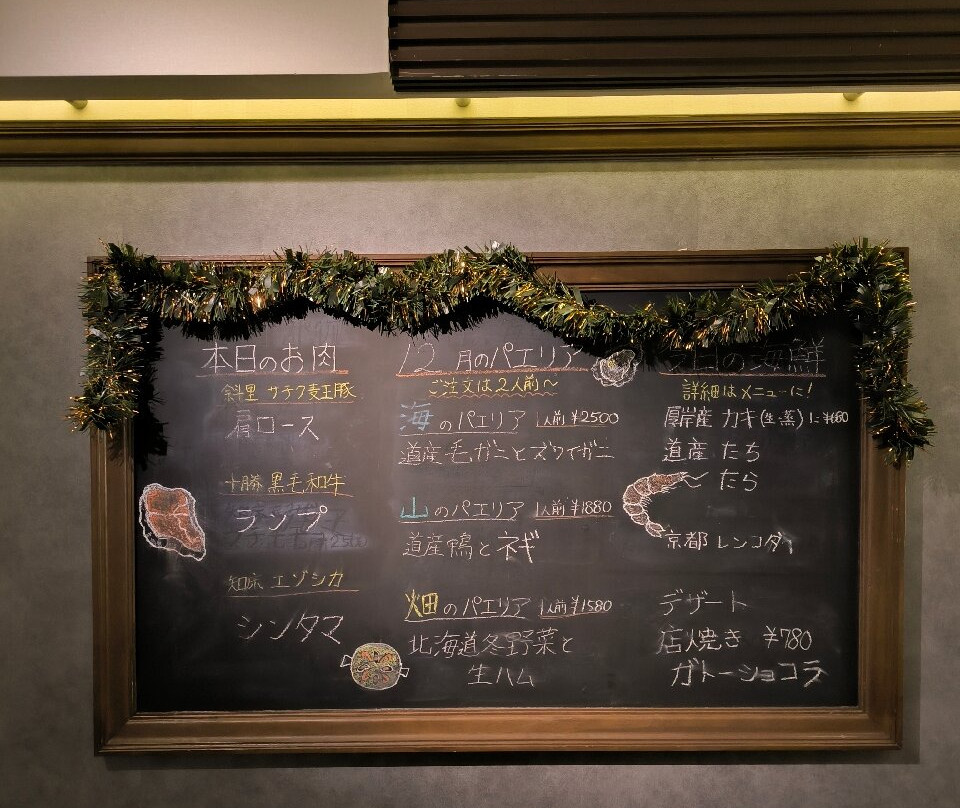 本日のお肉
斜里 サチク麦王豚
肩ロース
十勝 黒毛和牛
ランプ
知床 エゾシカ
シンタマ
12月のパエリア
ご注文は2人前〜
海のパエリア 1人前¥2500
道産毛ガニとズワイガニ
山のパエリア 1人前¥1880
道産鴨とネギ
畑のパエリア 1人前¥1580
北海道冬野菜と
生ハム
本日の海鮮
詳細はメニューに!
厚岸産 カキ(生、蒸)
道産 たち
たら
京都 レンコダイ
デザート
店焼き ¥780
ガトーショコラ